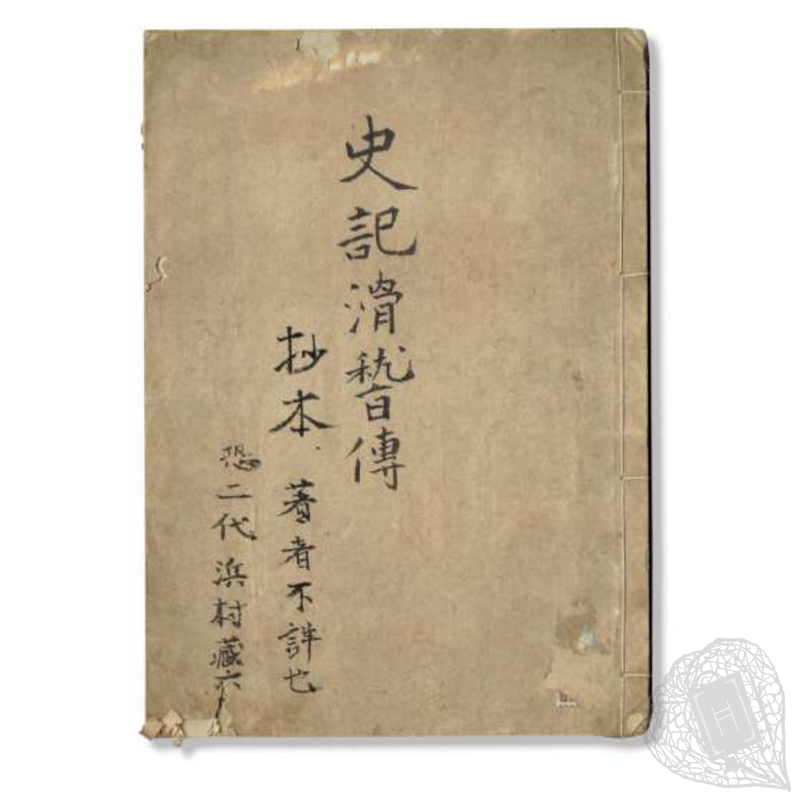 史記滑稽傳
抄本、著者不詳也
恐二代浜村藏六
H